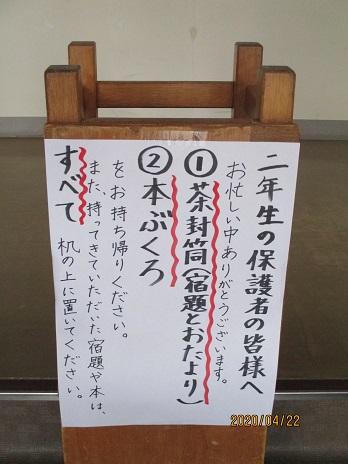 二年生の保護者の皆様へ
お忙しい中ありがとうございます。
①茶封筒(宿題とおたより)
②本ぶくろ
をお持ち帰りください。
また、持ってきていただいた宿題や本は、
すべて 机の上に置いてください。
2020/04/22